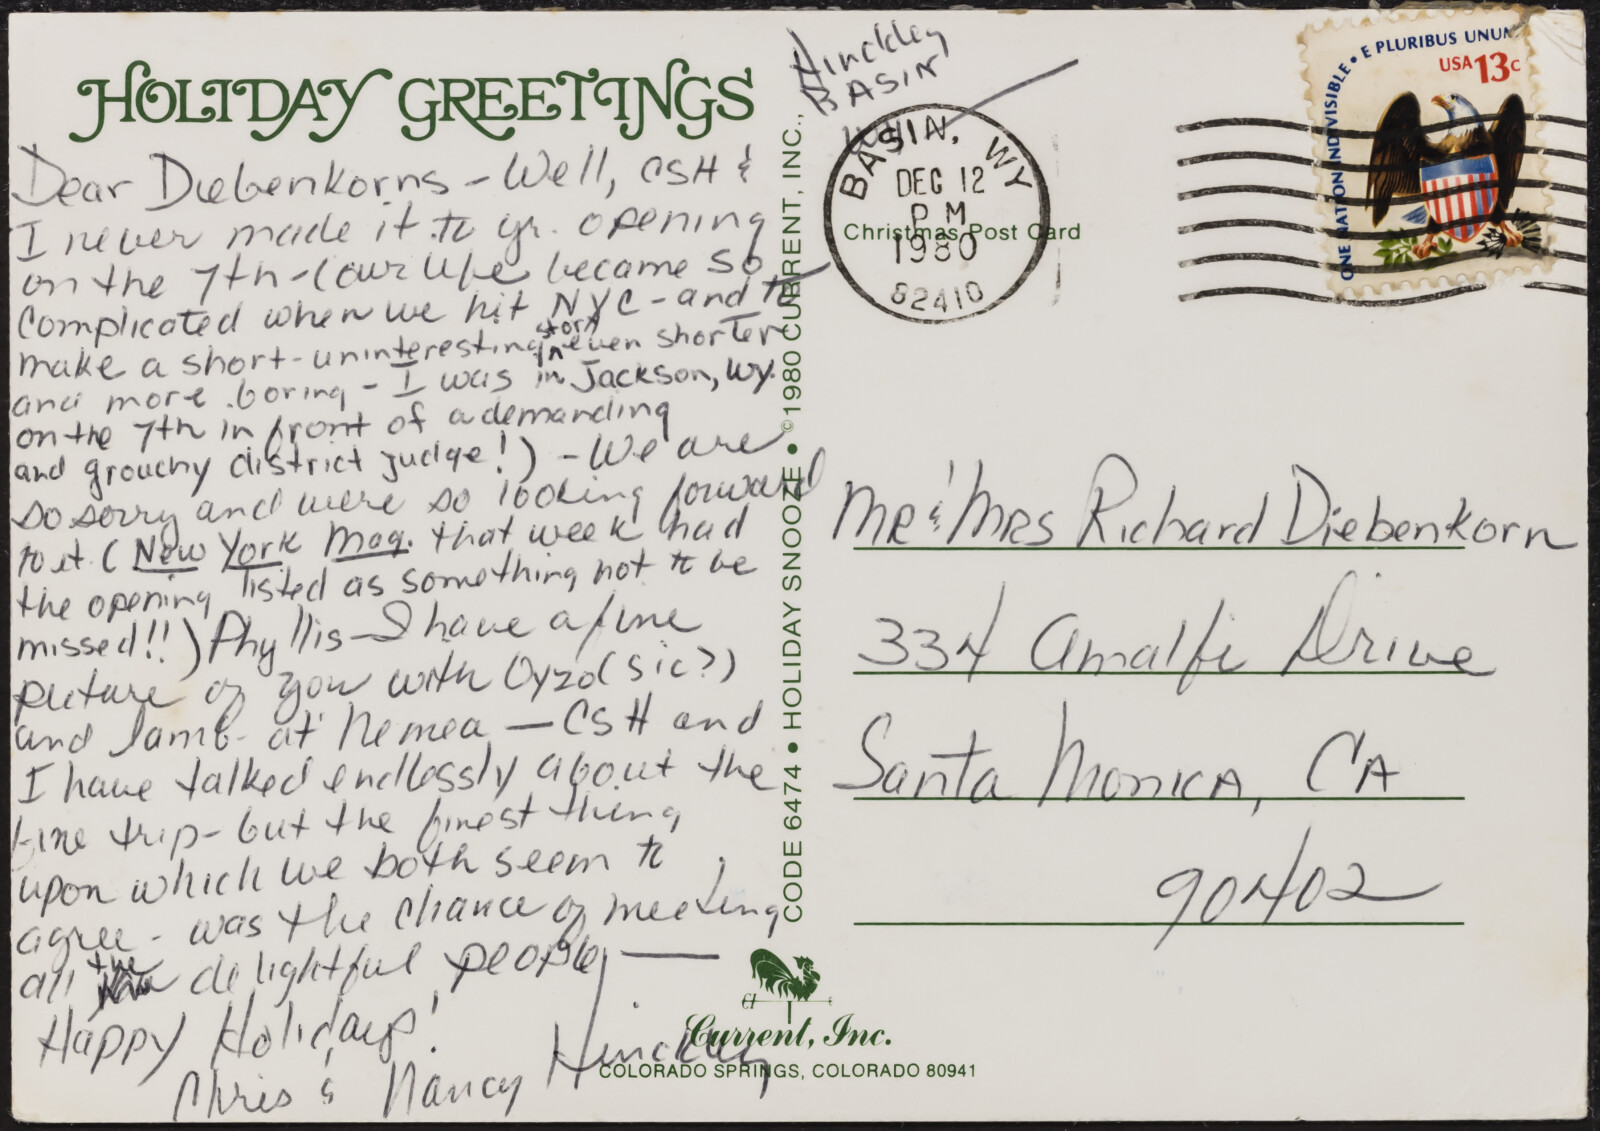 HOLIDAY GREETINGS
Dear Diebenkorns - Well, CSH &
I never made it to yr. opening
on the 7th - (our life became so
complicated when we hit NYC - and to
make a short - uninteresting story even shorter
and more boring - I was in Jackson, Wy.
on the 7th in front of a demanding
and grouchy district judge!) - We are
so sorry and were so looking forward
to it. (New York Mag. that week had
the opening listed as something not to be
missed!!) Phyllis - I have a fine
picture of you with Oyzo (sic?)
and lamb at Nemea - CSH and
I have talked endlessly about the
fine trip - but the finest thing
upon which we both seem to
agree - was the chance of meeting
all the delightful people, —
Happy Holidays!
Chris & Nancy Hinckley
Hinckley
BASIN
WY
BASIN, WY
DEC 12
PM
1980
82410
Christmas Post Card
ONE NATION INDIVISIBLE • E PLURIBUS UNUM
USA 13c
CODE 6474 • HOLIDAY SNOOZE • ©1980 CURRENT, INC.,
Mr & Mrs Richard Diebenkorn
334 Amalfi Drive
Santa Monica, CA
90402
Current, Inc.
COLORADO SPRINGS, COLORADO 80941